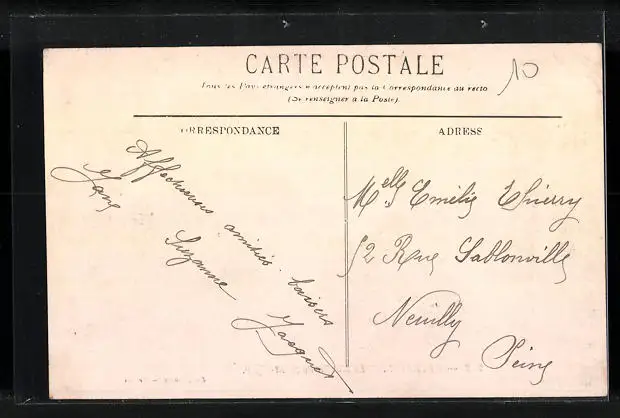 CARTE POSTALE
10
Tous les Pays étrangers n'acceptent pas la Correspondance au recto
(Se renseigner à la Poste).
RRESPONDANCE
ADRESS
Affectueuses amitiés. baisers
Suzanne Jacques
Melle Emilie Thierry
52 Rue Sablonville
Neuilly
Seine